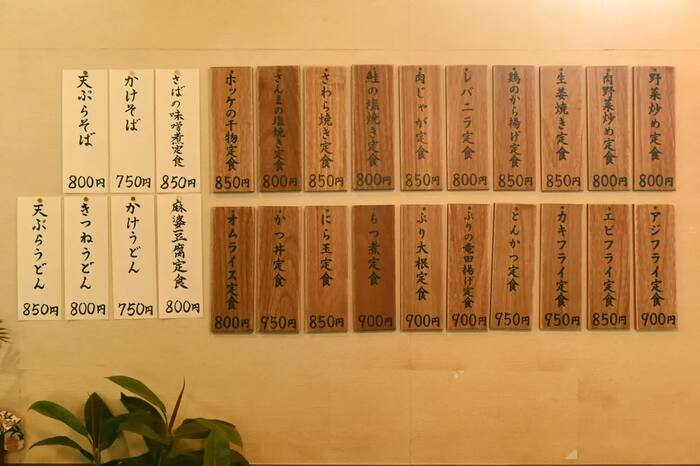 野菜炒め定食 800円
肉野菜炒め定食 800円
生姜焼き定食 850円
鶏のから揚げ定食 850円
レバニラ定食 800円
肉じゃが定食 850円
鮭の塩焼き定食 800円
さわら焼き定食 850円
さんまの塩焼き定食 800円
ホッケの干物定食 850円
さばの味噌煮定食 850円
かけそば 750円
天ぷらそば 800円
アジフライ定食 900円
エビフライ定食 850円
カキフライ定食 950円
とんかつ定食 950円
ぶりの竜田揚げ定食 900円
ぶり大根定食 900円
もつ煮定食 900円
にら玉定食 850円
かつ丼定食 950円
オムライス定食 800円
麻婆豆腐定食 800円
かけうどん 750円
きつねうどん 800円
天ぷらうどん 850円